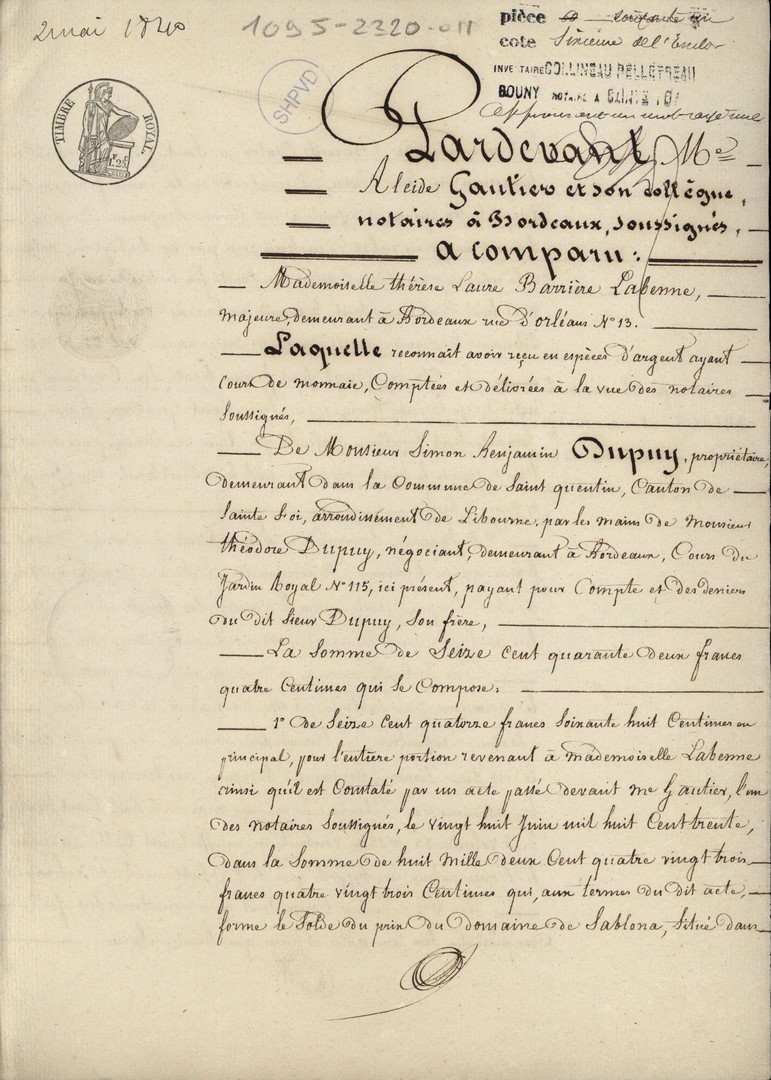 2 mai 1840
1095-2320-011
pièce soixante un
cote Sixieme de l'Enclos
INVENTAIRE COLLINEAU PELLETREAU
BOUNY NOTAIRE A SAINTE FOY
Approuvant un mot rayé nul
SHPVD
TIMBRE ROYAL
1F. 25c
Pardevant Me
Alcide Gautier et son collègue,
notaires à Bordeaux, soussignés,
a comparu:
Mademoiselle thérèse Laure Barrière Labenne,
majeure, demeurant à Bordeaux rue d'orléans N° 13.
Laquelle reconnait avoir reçu en espèces d'argent ayant
Cours de monnaie, Comptées et délivrées à la vue des notaires
soussignés,
De Monsieur Simon Benjamin Dupuy, propriétaire,
demeurant dans la Commune de Saint quentin, Canton de
Sainte Foi, arrondissement de Libourne, par les mains de Monsieur
théodore Dupuy, négociant, demeurant à Bordeaux, Cours du
Jardin Royal N° 115, ici présent, payant pour Compte et des deniers
du dit Sieur Dupuy, son frère,
La somme de Seize cent quarante deux francs
quatre Centimes qui se Compose:
1° de Seize cent quatorze francs soixante huit Centimes en
principal, pour l'entière portion revenant à mademoiselle Labenne
ainsi qu'il est Constaté par un acte passé devant me Gautier, l'un
des notaires Soussignés, le vingt huit Juin mil huit Cent trente,
dans la Somme de huit Mille deux Cent quatre vingt trois
francs quatre vingt trois Centimes qui, aux termes du dit acte,
forme le Solde du prix du Domaine de Sablona, situé dans